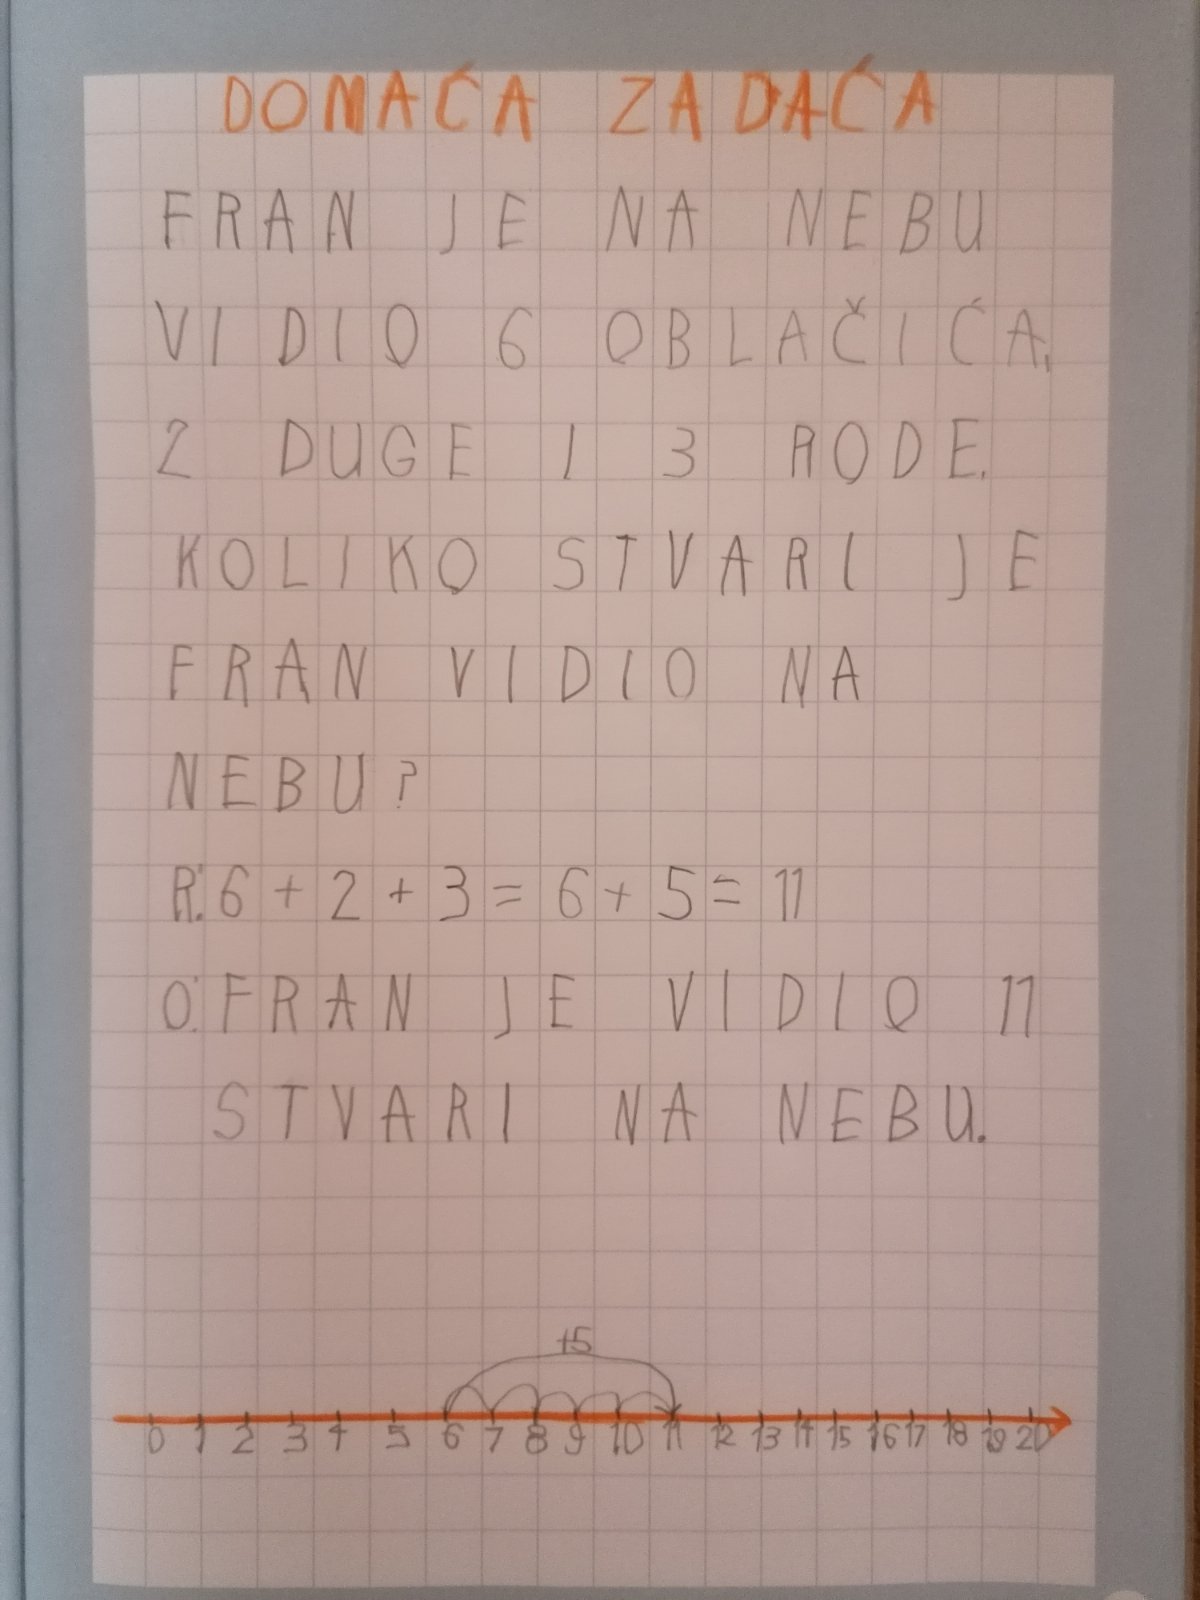 DOMAĆA ZADAĆA
FRAN JE NA NEBU
VIDIO 6 OBLAČIĆA,
2 DUGE I 3 RODE.
KOLIKO STVARI JE
FRAN VIDIO NA
NEBU?
R: 6 + 2 + 3 = 6 + 5 = 11
O: FRAN JE VIDIO 11
STVARI NA NEBU.
+5
0 1 2 3 4 5 6 7 8 9 10 11 12 13 14 15 16 17 18 19 20